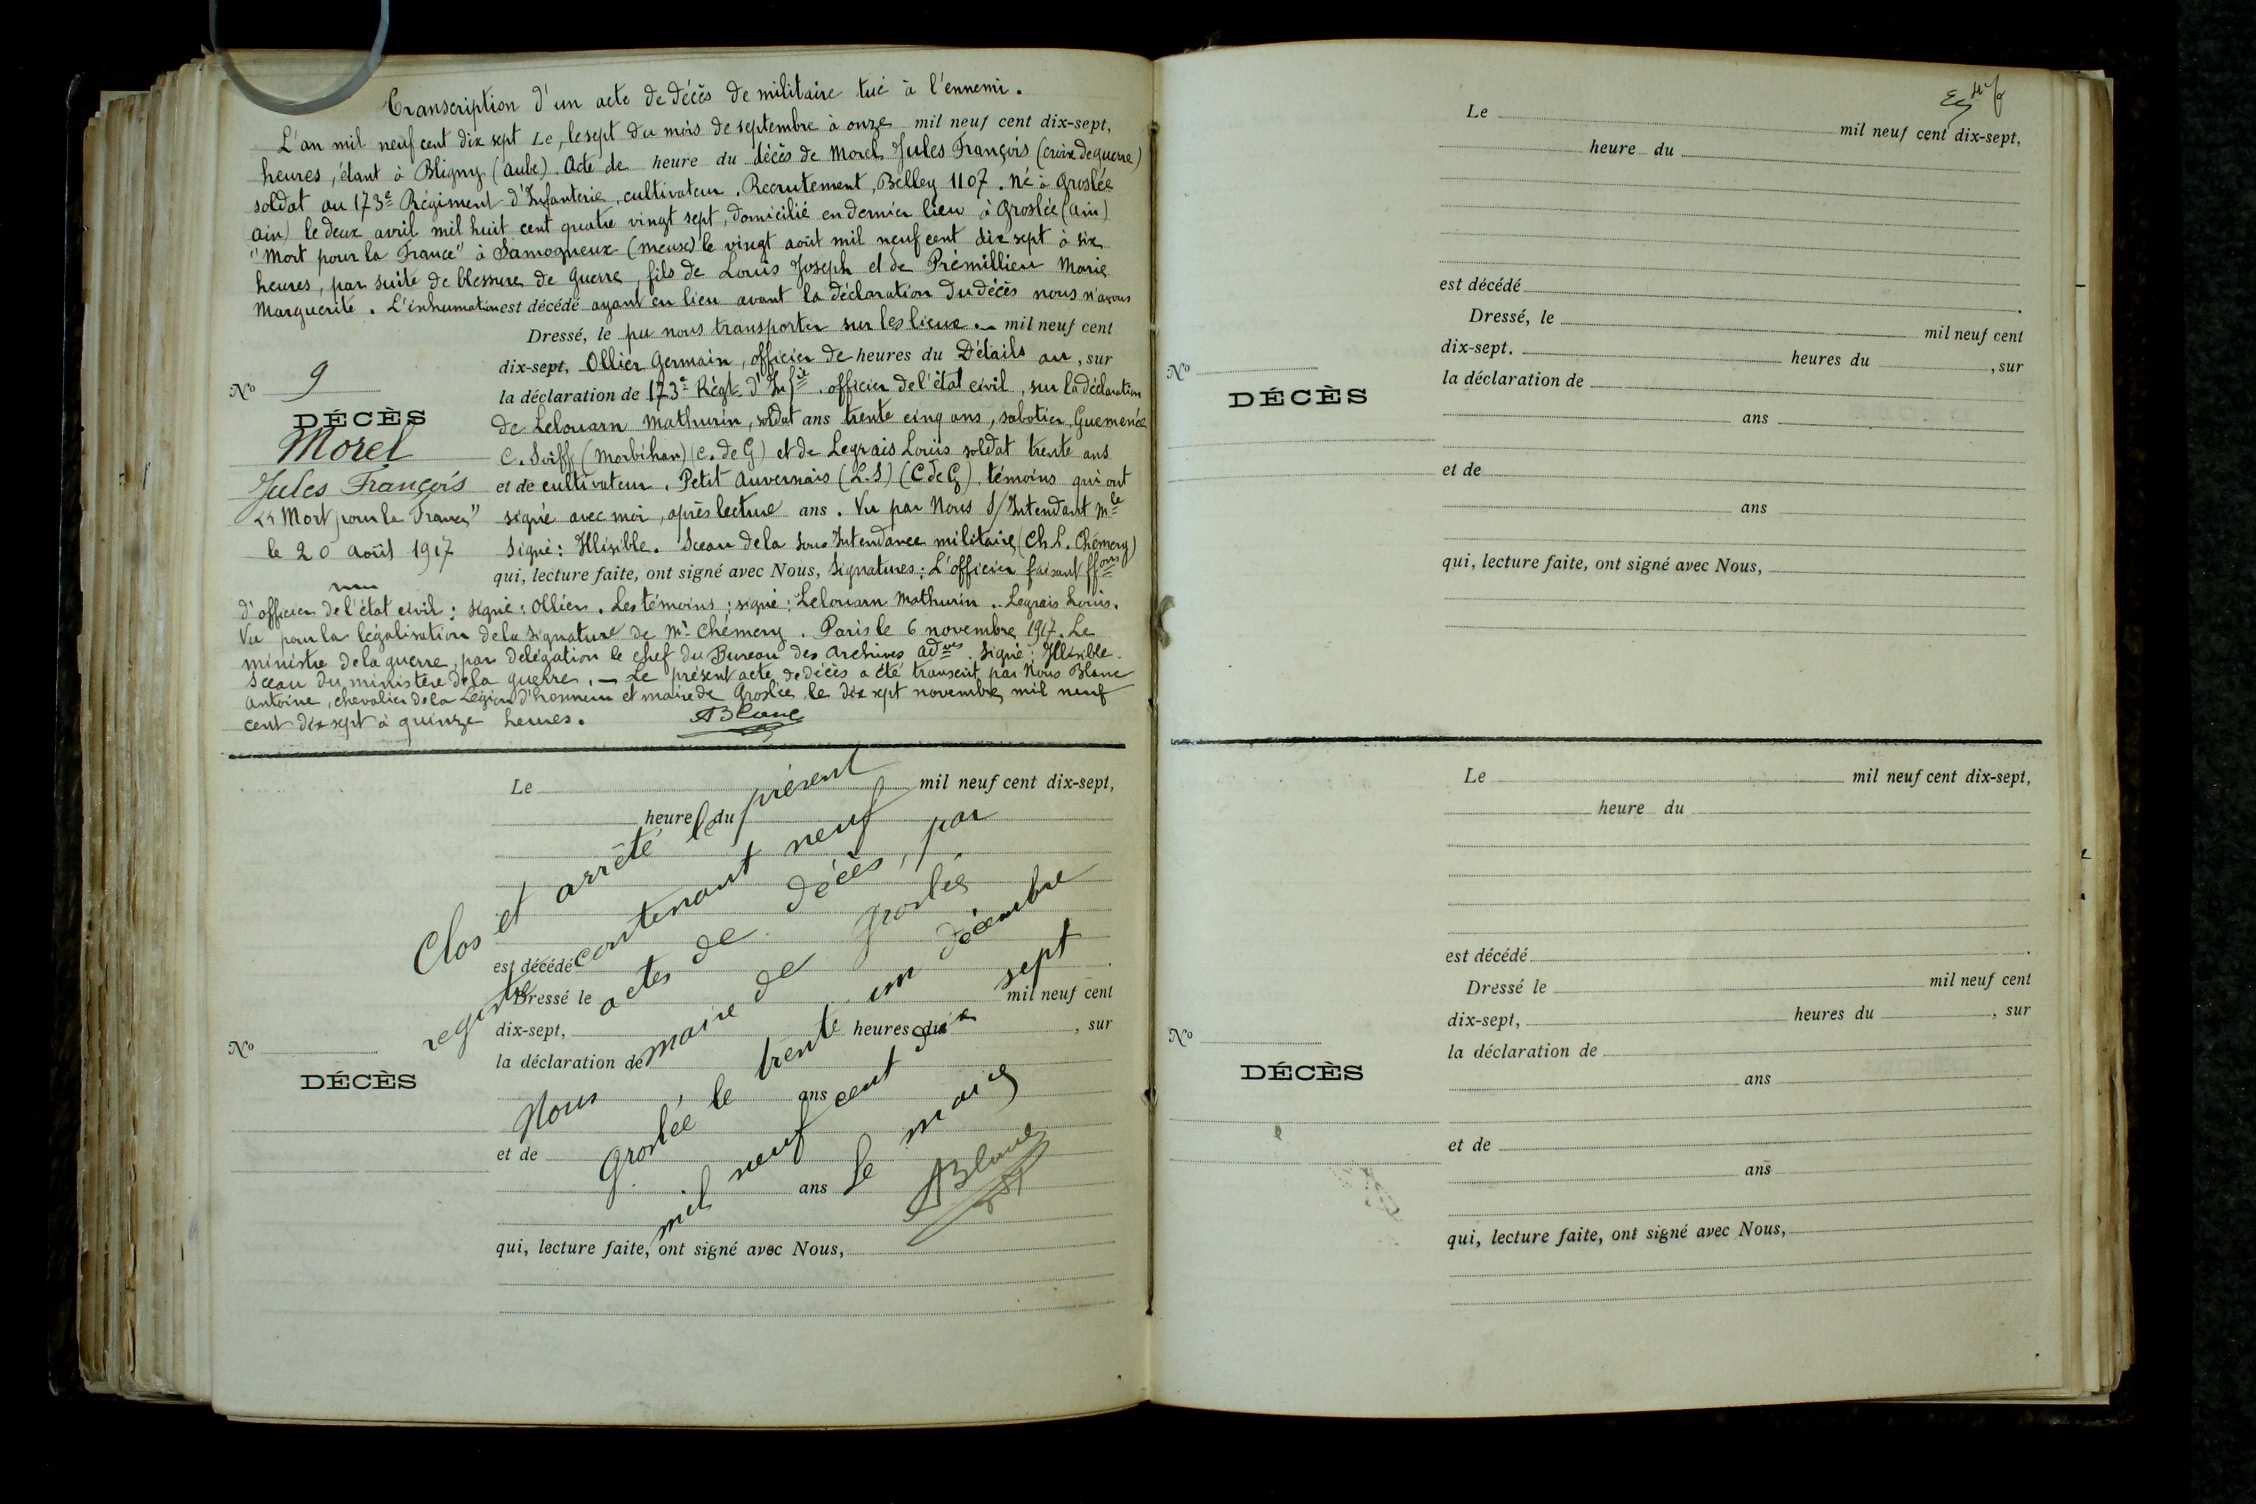 Transcription d'un acte de décès de militaire tué à l'ennemi.
L'an mil neuf cent dix sept Le, le sept du mois de septembre à onze mil neuf cent dix-sept,
heures, étant à Bligny (Aube). Acte de heure du décès de Morel Jules François (croix de guerre)
soldat au 173e Régiment d'Infanterie, cultivateur. Recrutement, Belley 1107. Né à Groslée
Ain) le deux avril mil huit cent quatre vingt sept, domicilié en dernier lieu à Groslée (Ain)
"Mort pour la France" à Samogneux (Meuse) le vingt août mil neuf cent dix sept à six
heures, par suite de blessure de guerre, fils de Louis Joseph et de Prémillieu Marie
Marguerite. L'inhumation est décédé ayant eu lieu avant la déclaration du décès nous n'avons
Dressé, le pu nous transporter sur les lieux. — mil neuf cent
dix-sept, Ollier Germain, officier de heures du Détails au, sur
la déclaration de 173e Régt d'Infie. officier de l'état civil, sur la déclaration
de Lelouarn Mathurin, soldat ans trente cinq ans, sabotier, Guemenée
C. Soiff (Morbihan) (C. de G) et de Legrais Louis soldat trente ans
et de cultivateur. Petit Auvernais (L.I) (C de G), témoins qui ont
signé avec moi, après lecture ans. Vu par Nous S/Intendant Mre
Signé: Illisible. Sceau de la Sous Intendance militaire (Ch L. Chémery)
qui, lecture faite, ont signé avec Nous, Signatures: L'officier faisant ffons
d'officier de l'état civil: signé: Ollier. Les témoins: signé: Lelouarn Mathurin.. Legrais Louis.
Vu pour la légalisation de la signature de Mr Chémery. Paris le 6 novembre 1917. Le
ministre de la guerre, par délégation le chef du Bureau des Archives Adves. Signé: Illisible.
Sceau du ministère de la guerre. — Le présent acte de décès a été transcrit par Nous Blanc
Antoine, chevalier de la Légion d'honneur et maire de Groslée le dix sept novembre mil neuf
cent dix sept à quinze heures.
ABlanc
No 9
DÉCÈS
Morel
Jules François
"Mort pour la France"
le 20 Août 1917
Le mil neuf cent dix-sept,
heure du
est décédé
Dressé le mil neuf cent
dix-sept, heures du , sur
la déclaration de
ans
et de
ans
qui, lecture faite, ont signé avec Nous,
No
DÉCÈS
Clos et arrêté le présent
registre contenant neuf
actes de décès, par
Nous maire de Groslée
Groslée le trente un décembre
mil neuf cent dix sept
Le maire
ABlanc
Le mil neuf cent dix-sept,
heure du
est décédé
Dressé, le mil neuf cent
dix-sept. heures du , sur
la déclaration de
ans
et de
ans
qui, lecture faite, ont signé avec Nous,
No
DÉCÈS
Le mil neuf cent dix-sept,
heure du
est décédé
Dressé le mil neuf cent
dix-sept, heures du , sur
la déclaration de
ans
et de
ans
qui, lecture faite, ont signé avec Nous,
No
DÉCÈS